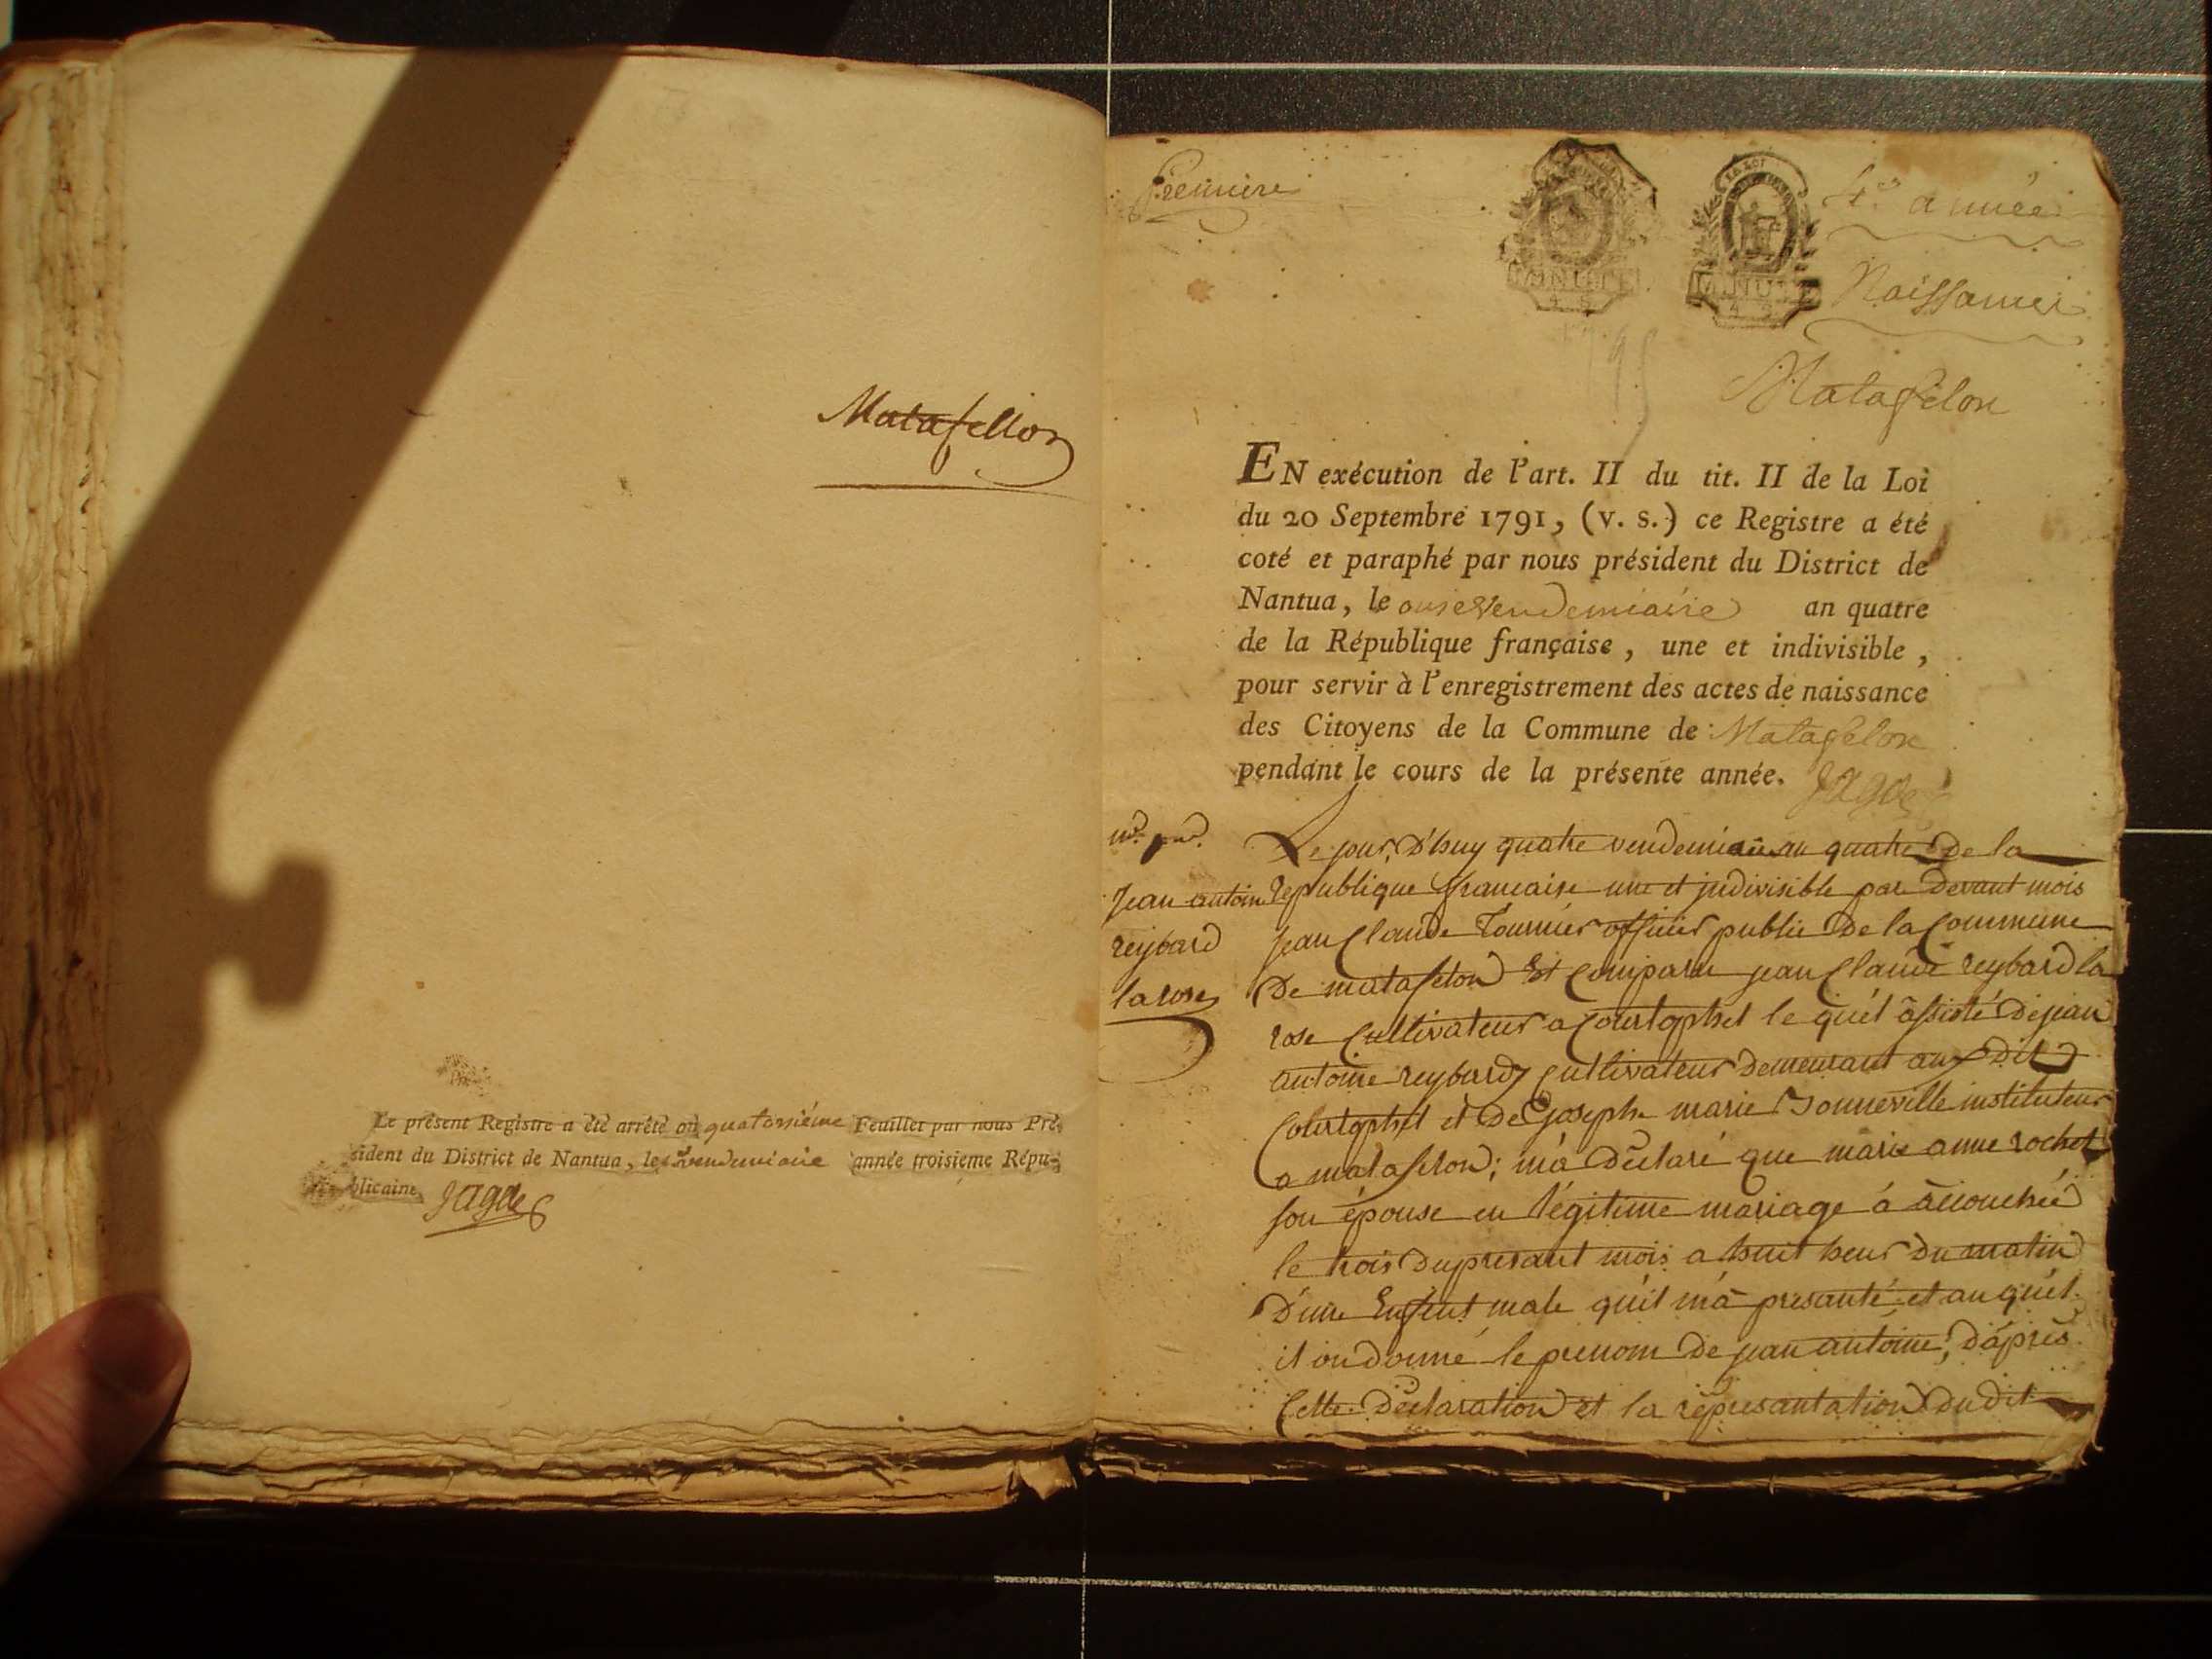 Matafellon
Le présent Registre a été arrêté au quatorsiéme Feuillet par nous Pré-
sident du District de Nantua, le vendemiaire année troisieme Répu-
blicaine. Jagde
Premiere
4e année
Naissances
MINUTE
4 S
MINUTE
4 S
1795
Matafelon
EN exécution de l'art. II du tit. II de la Loi
du 20 Septembre 1791, (v. s.) ce Registre a été
coté et paraphé par nous président du District de
Nantua, le onse vendemiaire an quatre
de la République française, une et indivisible,
pour servir à l'enregistrement des actes de naissance
des Citoyens de la Commune de Matafelon
pendant le cours de la présente année. Jagde
Jean antoine
reybard
la rose
Le jour, d'huy quatre vendemiaire an quatre de la
republique francaise une et jndivisible par devant mois
jean Claude tournier officier public de la Commune
de matafelon Et Comparu jean Claude reybard la
rose Cultivateur a Courtophet le quél assisté de jean
antoine reybard Cultivateur demeurant aux dit
Courtophet et de joseph marie Sonneville instituteur
a matafelon; m'à déclaré que marie anne rochet
son épouse en légitime mariage à àccouchée
le trois du presant mois a huit heur du matin
d'une Enfent male qu'il m'à presanté et au quél
il on donné le prenom de jean antoine, d'àprès
Cette déclaration et la represantation du dit